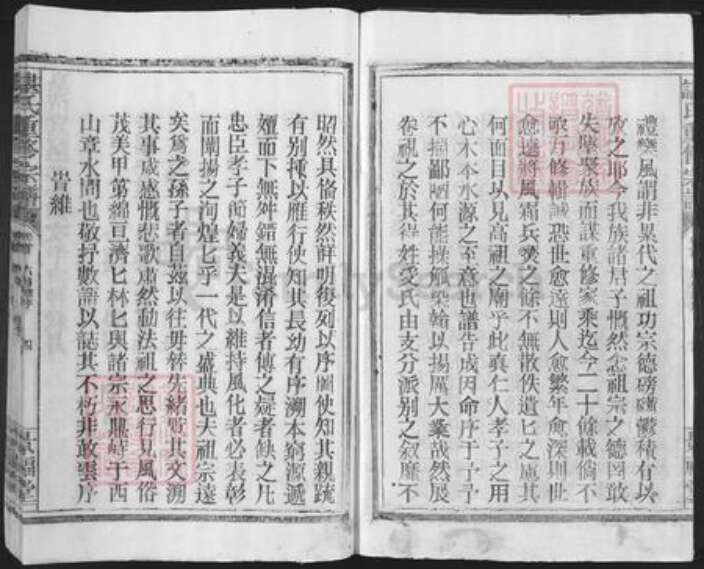 禮樂風謂非累代之祖功宗德磅礴鬱積有以
致之耶今我族諸君子慨然念祖宗之德罔敢
失墜聚族而謀重修家乘迄今二十餘載倘不
亟為修輯誠恐世愈遠則人愈繁年愈深則世
愈遠將風霜兵燹之餘不無散佚遺亡之虞其
何面目以見高祖之廟乎此真仁人孝子之用
心木本水源之至意也譜告成因命序于予予
不揣鄙陋何能操觚染翰以揚厥大業哉然展
卷視之於其得姓受氏由支分派別之叙靡不
昭然具備秩然詳明復列以序圖使知其親疏
有別揰以雁行使知其長幼有序溯本窮源遞
嬗而下無舛錯無混淆信者傳之疑者缺之凡
忠臣孝子節婦義夫是以維持風化者必表彰
而闡揚之洵煌匕乎一代之盛典也夫祖宗遠
矣為之孫子者自茲以往毋替先緒覽其文溯
其事咸感慨悲歌肅然動法祖之思行見風俗
茂美甲第綿亘濟匕林匕與諸宗永鼎峙于西
山章水間也敬抒數語以誌其不朽非敢雲序
旹維
氏重修宗譜